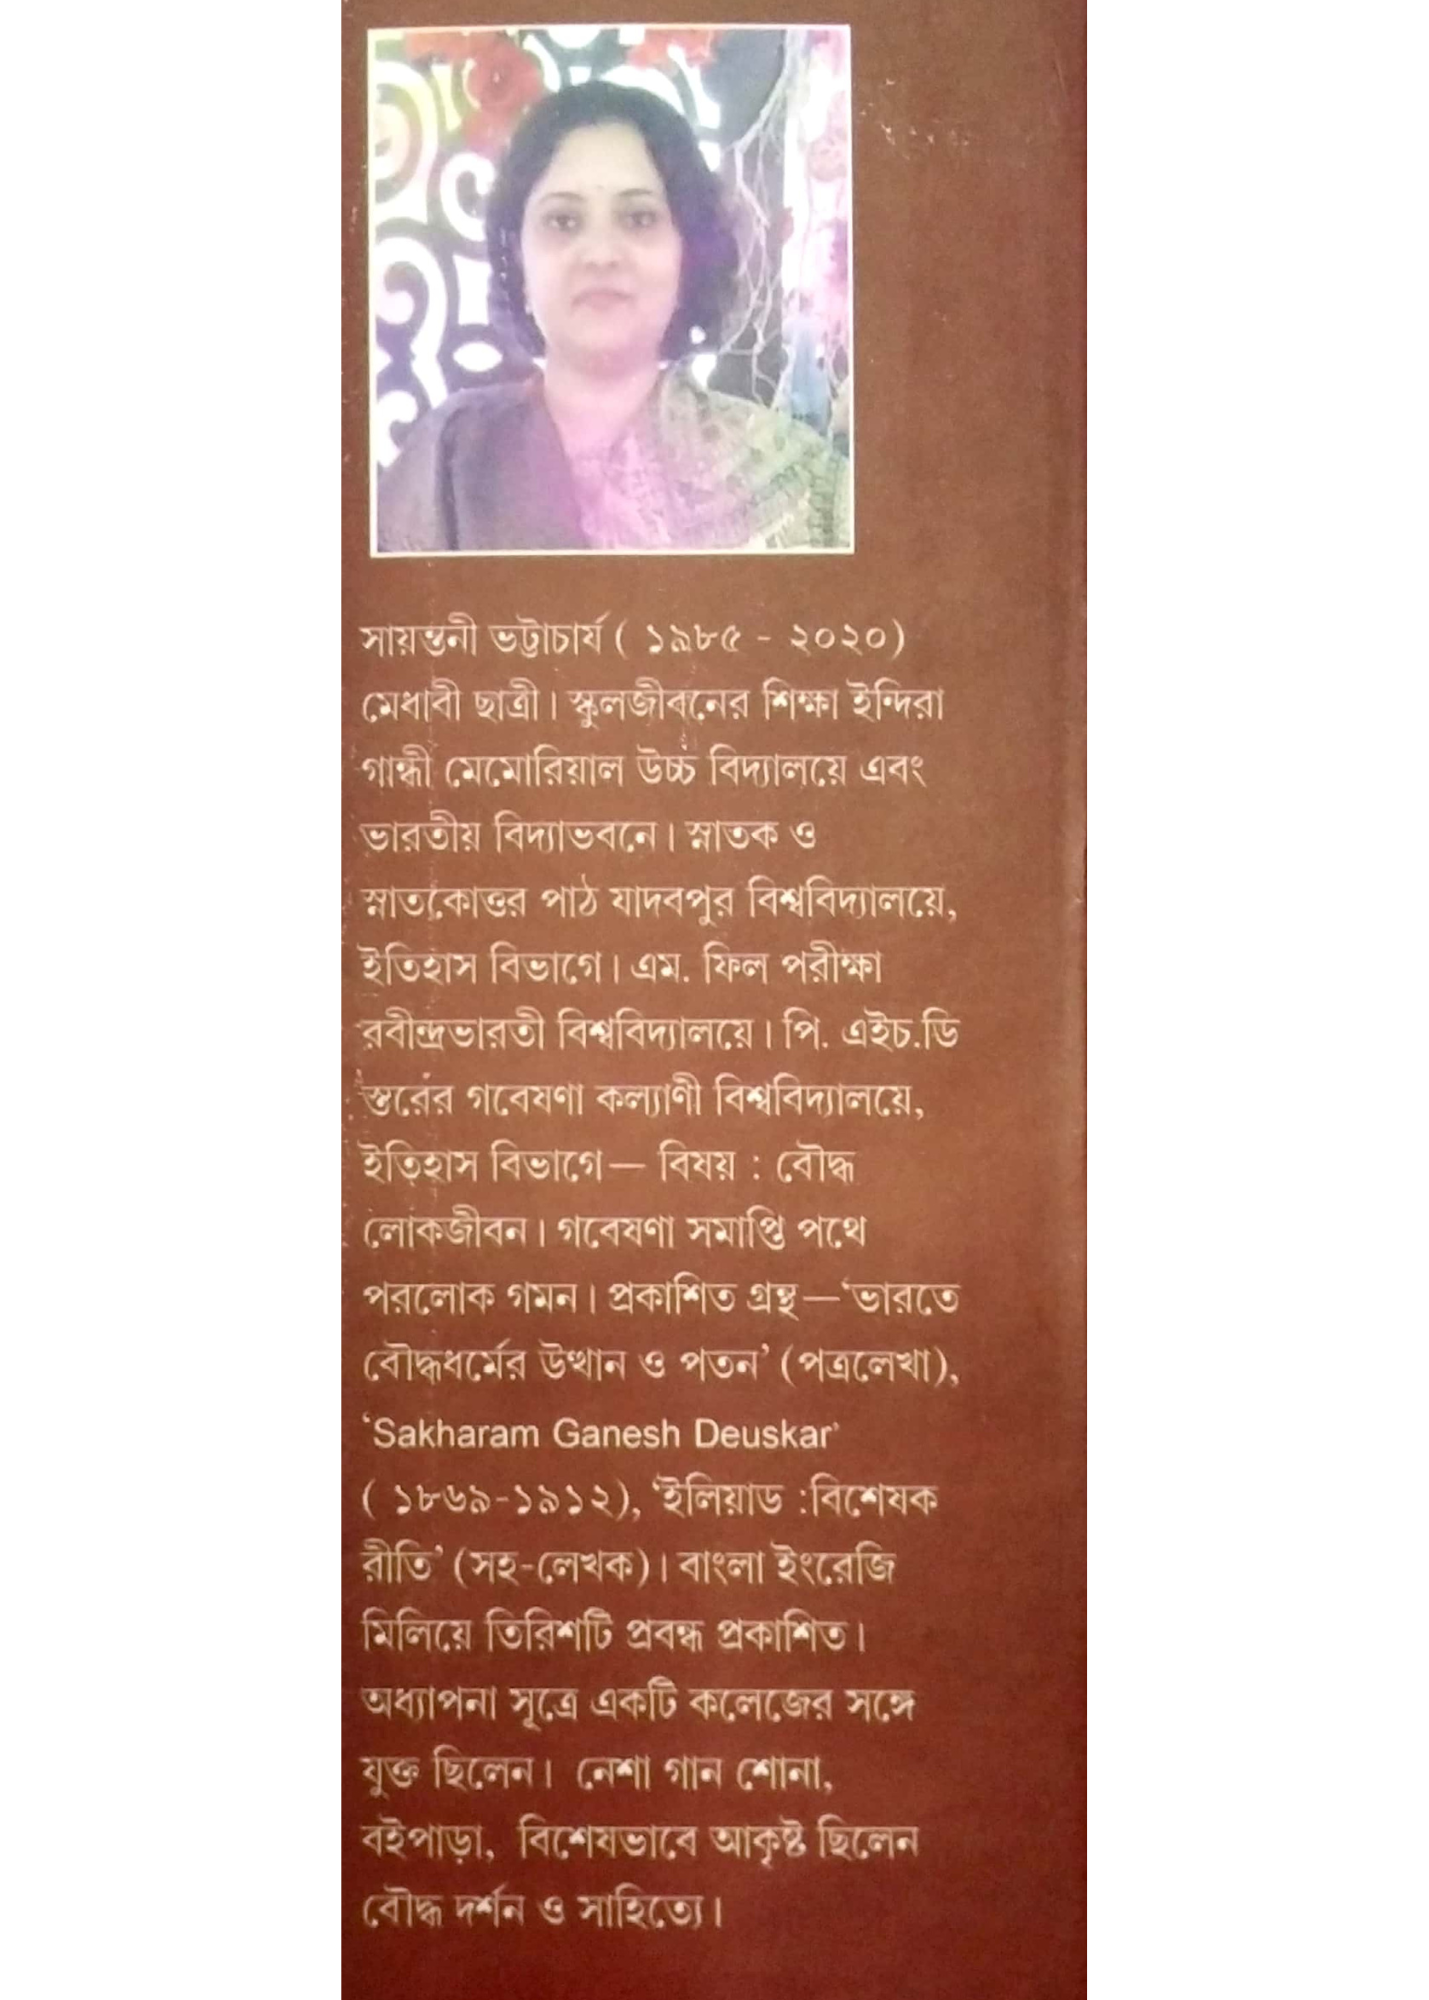 সায়ন্তনী ভট্টাচার্য ( ১৯৮৫ - ২০২০)
মেধাবী ছাত্রী। স্কুলজীবনের শিক্ষা ইন্দিরা
গান্ধী মেমোরিয়াল উচ্চ বিদ্যালয়ে এবং
ভারতীয় বিদ্যাভবনে। স্নাতক ও
স্নাতকোত্তর পাঠ যাদবপুর বিশ্ববিদ্যালয়ে,
ইতিহাস বিভাগে। এম. ফিল পরীক্ষা
রবীন্দ্রভারতী বিশ্ববিদ্যালয়ে। পি. এইচ.ডি
স্তরের গবেষণা কল্যাণী বিশ্ববিদ্যালয়ে,
ইতিহাস বিভাগে— বিষয় : বৌদ্ধ
লোকজীবন। গবেষণা সমাপ্তি পথে
পরলোক গমন। প্রকাশিত গ্রন্থ—‘ভারতে
বৌদ্ধধর্মের উত্থান ও পতন’ (পত্রলেখা),
‘Sakharam Ganesh Deuskar’
( ১৮৬৯-১৯১২), ‘ইলিয়াড :বিশেষক
রীতি’ (সহ-লেখক)। বাংলা ইংরেজি
মিলিয়ে তিরিশটি প্রবন্ধ প্রকাশিত।
অধ্যাপনা সূত্রে একটি কলেজের সঙ্গে
যুক্ত ছিলেন। নেশা গান শোনা,
বইপাড়া, বিশেষভাবে আকৃষ্ট ছিলেন
বৌদ্ধ দর্শন ও সাহিত্যে।